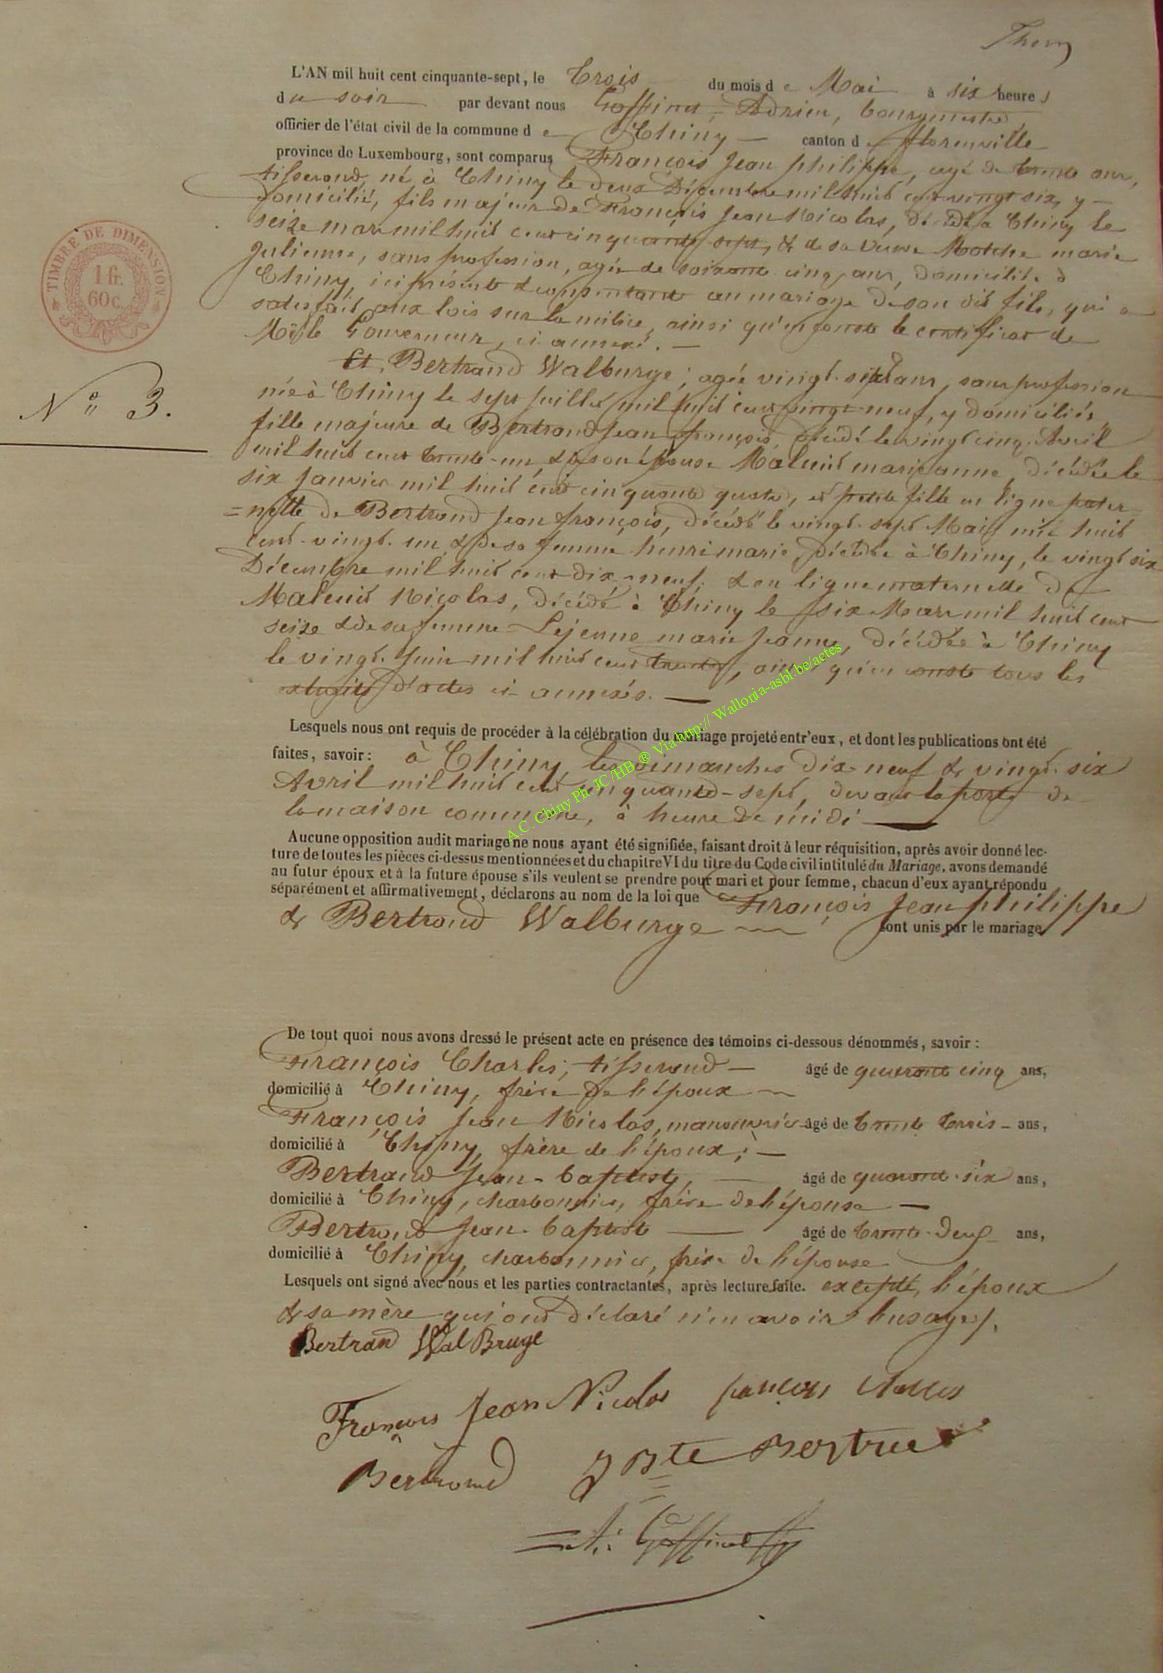 L'AN mil huit cent cinquante-sept, le Trois du mois de Mai à six heures
du soir par devant nous Goffinet, Adrien, bourgmestre,
officier de l'état civil de la commune de Chiny — canton de florenville
province de Luxembourg, sont comparus François Jean philippe, agé de trente ans,
tisserand, né à Chiny le deux Décembre mil huit cent vingt six, y
domicilié, fils majeur de François Jean Nicolas, décédé à Chiny le
seize mars mil huit cent cinquante sept, & de sa veuve Motche marie
Julienne, sans profession, agée de soixante cinq ans, domiciliée à
Chiny, ici présente & consentante au mariage de son dit fils, qui a
satisfait aux lois sur la milice, ainsi qu'en conste le certificat de
Mr le Gouverneur, ci annexé. —
Et, Bertrand Walburge, agée vingt-sept ans, sans profession
née à Chiny le sept juillet mil huit cent vingt-neuf, y domiciliée,
fille majeure de Bertrand Jean françois, décédé le vingt cinq Avril
mil huit cent trente-un & de son épouse Maleuit marianne, décédée le
six Janvier mil huit cent cinquante quatre, et petite fille en ligne pater-
=nelle de Bertrand Jean françois, décédé le vingt-sept Mai mil huit
cent-vingt-un, & de sa femme henri marie, décédée à Chiny, le vingt six
Décembre mil huit cent dix-neuf, & en ligne maternelle de
Maleuit Nicolas, décédé à Chiny le six Mars mil huit cent
seize & de sa femme Lejeune marie Jeanne, décédée à Chiny
le vingt Juin mil huit cent trente, ainsi qu'en conste tous les
extraits d'actes ci-annexés. —
TIMBRE DE DIMENSION
1 fr.
60 c.
No 3.
Lesquels nous ont requis de procéder à la célébration du mariage projeté entr'eux, et dont les publications ont été
faites, savoir : à Chiny les Dimanches dix-neuf & vingt-six
Avril mil huit cent cinquante-sept, devant la porte de
la maison commune, à heure de midi —
Aucune opposition audit mariage ne nous ayant été signifiée, faisant droit à leur réquisition, après avoir donné lec-
ture de toutes les pièces ci-dessus mentionnées et du chapitre VI du titre du Code civil intitulé du Mariage, avons demandé
au futur époux et à la future épouse s'ils veulent se prendre pour mari et pour femme, chacun d'eux ayant répondu
séparément et affirmativement, déclarons au nom de la loi que François Jean philippe
& Bertrand Walburge — sont unis par le mariage.
De tout quoi nous avons dressé le présent acte en présence des témoins ci-dessous dénommés, savoir :
François Charles, tisserand — âgé de quarante cinq ans,
domicilié à Chiny, frère de l'époux —
François Jean Nicolas, manouvrier âgé de trente trois — ans,
domicilié à Chiny, frère de l'époux; —
Bertrand Jean-baptiste, — âgé de quarante-six ans,
domicilié à Chiny, charbonnier, frère de l'épouse —
Bertrand Jean-baptiste — âgé de trente-deux ans,
domicilié à Chiny, charbonnier, frère de l'épouse
Lesquels ont signé avec nous et les parties contractantes, après lecture faite. excepté, l'époux
& sa mère qui ont déclaré n'en avoir l'usage.
Bertrand WalBruge
François Jean Nicolas françois charles
Bertrand J Bte Bertrand
A. Goffinet
A.C. Chiny Ph JC/HB ® Via http:// Wallonia-asbl-be/actes